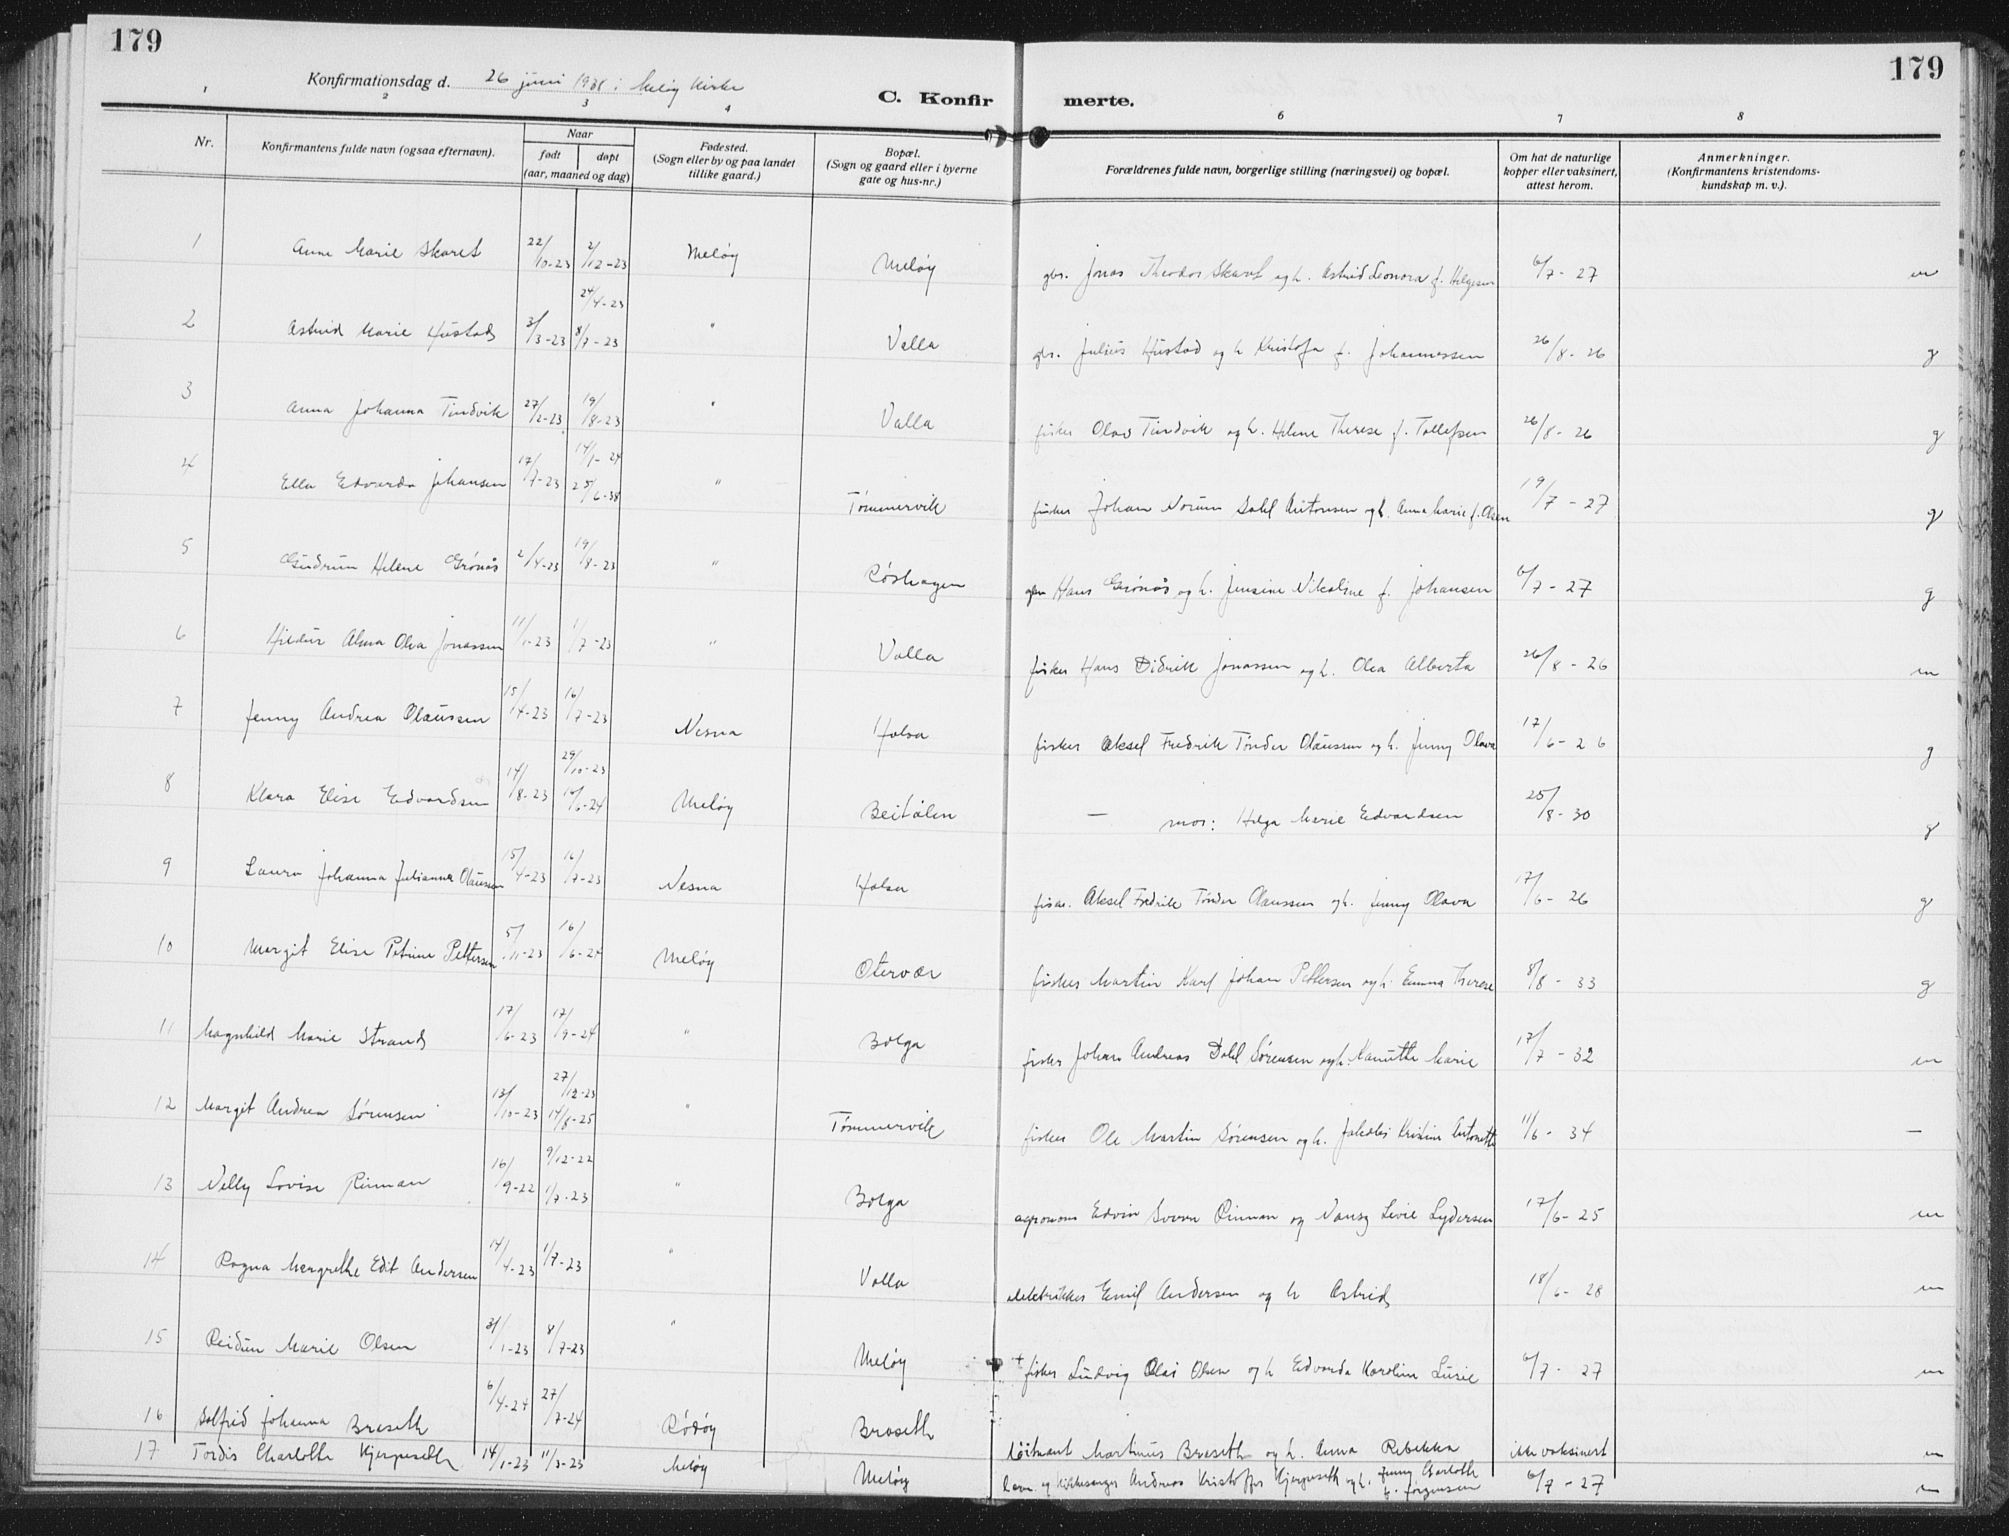 179
179
Konfirmationsdag d. 26 juni 1938 i Meløy kirke
C. Konfirmerte.
1 2 3 4 6 7 8
Nr. Konfirmantens fulde navn (ogsaa efternavn). Naar født døpt (aar, maaned og dag) Fødested. (Sogn eller by og paa landet tillike gaard.) Bopæl. (Sogn og gaard eller i byerne gate og hus-nr.) Forældrenes fulde navn, borgerlige stilling (næringsvei) og bopæl. Om hat de naturlige kopper eller vaksinert, attest herom. Anmerkninger. (Konfirmantens kristendoms-kundskap m. v.).
1 Anne Marie Skaret 22/10-23 2/12-23 Meløy Meløy gbr. Jonas Theodor Skaret og h. Astrid Leonora f. Helgesen 6/7-27 m
24/4-23
2 Astrid Marie Hustad 3/3-23 8/7-23 " Valla gbr. Julius Hustad og h Kristofa f. Johannessen 26/8-26 g
3 Anna Johanna Tindvik 27/2-23 19/8-23 " Valla fisker Olav Tindvik og h. Helene Therese f. Tollefsen 26/8-26 g
14/1-24
4 Ella Edvarda Johansen 17/7-23 25/6-38 " Tømmervik fisker Johan Norum Dahl Antonsen og h. Anna Marie f. Olsen 19/7-27 g
5 Gudrun Helene Grønås 2/4-23 19/8-23 " Røshagen gbr Hans Grønås og h. Jensine Nikoline f. Johansen 6/7-27 g
6 Hildur Alma Olea Jonassen 11/1-23 1/7-23 " Valla fisker Hans Didrik Jonassen og h. Olea Alberta 26/8-26 m
7 Jenny Andrea Olaussen 15/4-23 16/7-23 Nesna Holsa fisker Aksel Fredrik Tønder Olaussen og h. Jenny Olava 17/6-26 g
29/10-23
8 Klara Elise Edvardsen 14/8-23 /6-24 Meløy Beitålen — mor: Helga Marie Edvardsen 25/8-30 g
9 Laura Johanna Julianna Olaussen 15/4-23 16/7-23 Nesna Holsa fisker. Aksel Fredrik Tønder Olaussen og h. Jenny Olava 17/6-26 g
10 Margit Elise Petrine Pettersen 5/11-23 16/6-24 Meløy Otervær fisker Martin Karl Johan Pettersen og h. Emma Therese 8/8-33 g
11 Magnhild Marie Strand 17/6-23 17/9-24 " Bolga fisker Johan Andreas Dahl Sørensen og h. Kanutte Marie 17/7-32 m
27/12-23
12 Margit Andrea Sørensen 13/10-23 14/8-25 " Tømmervik fisker Ole Martin Sørensen og h. Jakobi Kristine Antonette 11/6-34 —
9/12-22
13 Nelly Lovise Rinman 16/9-22 1/7-23 " Bolga agronom Edvin Rinman og Nansy Livie Lydersen 17/6-25 m
14 Ragna Margrethe Edit Andersen 14/4-23 1/7-23 " Valla elektriker Emil Andersen og h Astrid 18/6-28 m
15 Reidun Marie Olsen 31/1-23 8/7-23 " Meløy + fisker Ludvig Olai Olsen og h Edvarda Karoline Lusie 6/7-27 m
16 Solfrid Johanna Braseth 6/4-24 27/7-24 Rødøy Braseth løitnant Martinus Braseth og h. Anna Rebekka ikke vaksinert m
17 Tordis Charlotte Hjerpeseth 14/1-23 11/3-23 Meløy Meløy lærer og kirkesanger Andreas Kristoffer Hjerpeseth og h. Jenny Charlotte f. Jørgensen 6/7-27 m